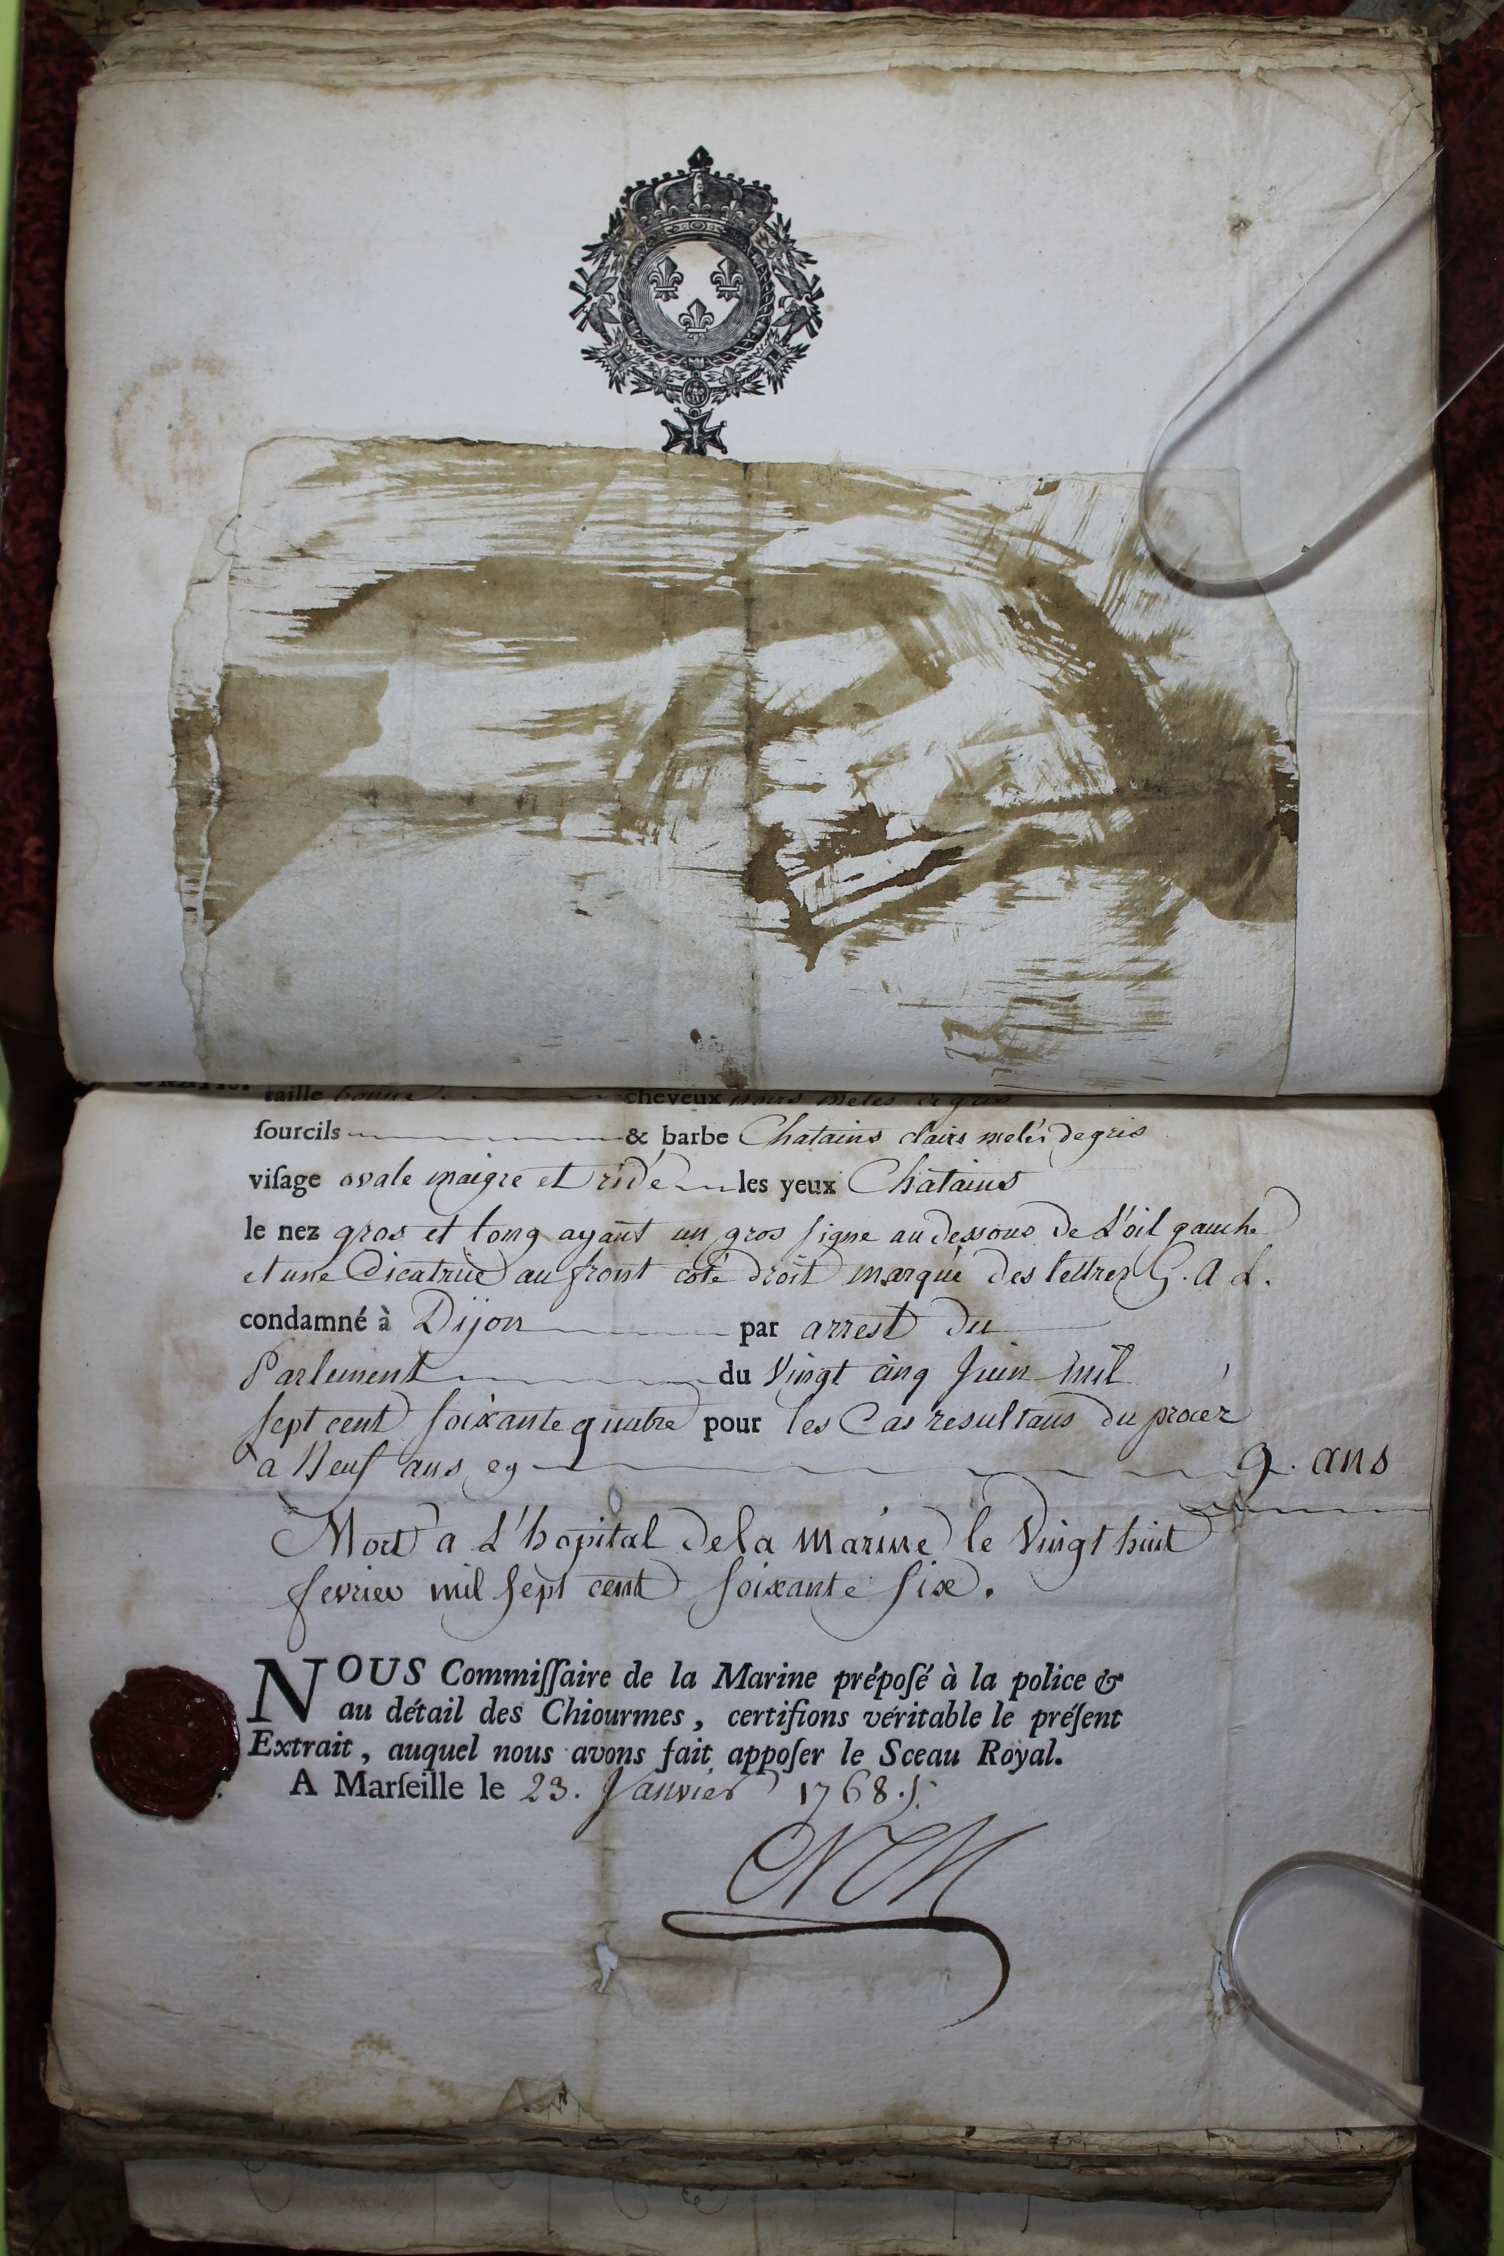 taille bonne cheveux noirs melés de gris
ſourcils & barbe Chatains clairs melés de gris
viſage ovale maigre et ridé les yeux Chatains
le nez gros et long ayant un gros signe au dessous de L'oil gauche
et une Cicatrice au front coté droit marqué des lettres G. A L.
condamné à Dijon par arrest du
Parlement du Vingt cinq Juin mil
sept cent soixante quatre pour les Cas resultans du procéz
a Neuf ans cy 9. ans
Mort a L'hopital de la Marine le Vingt huit
fevrier mil sept cent soixante six.
NOUS Commiſſaire de la Marine prépoſé à la police &
au détail des Chiourmes, certifions véritable le préſent
Extrait, auquel nous avons fait appoſer le Sceau Royal.
A Marſeille le 23. Janvier 1768.